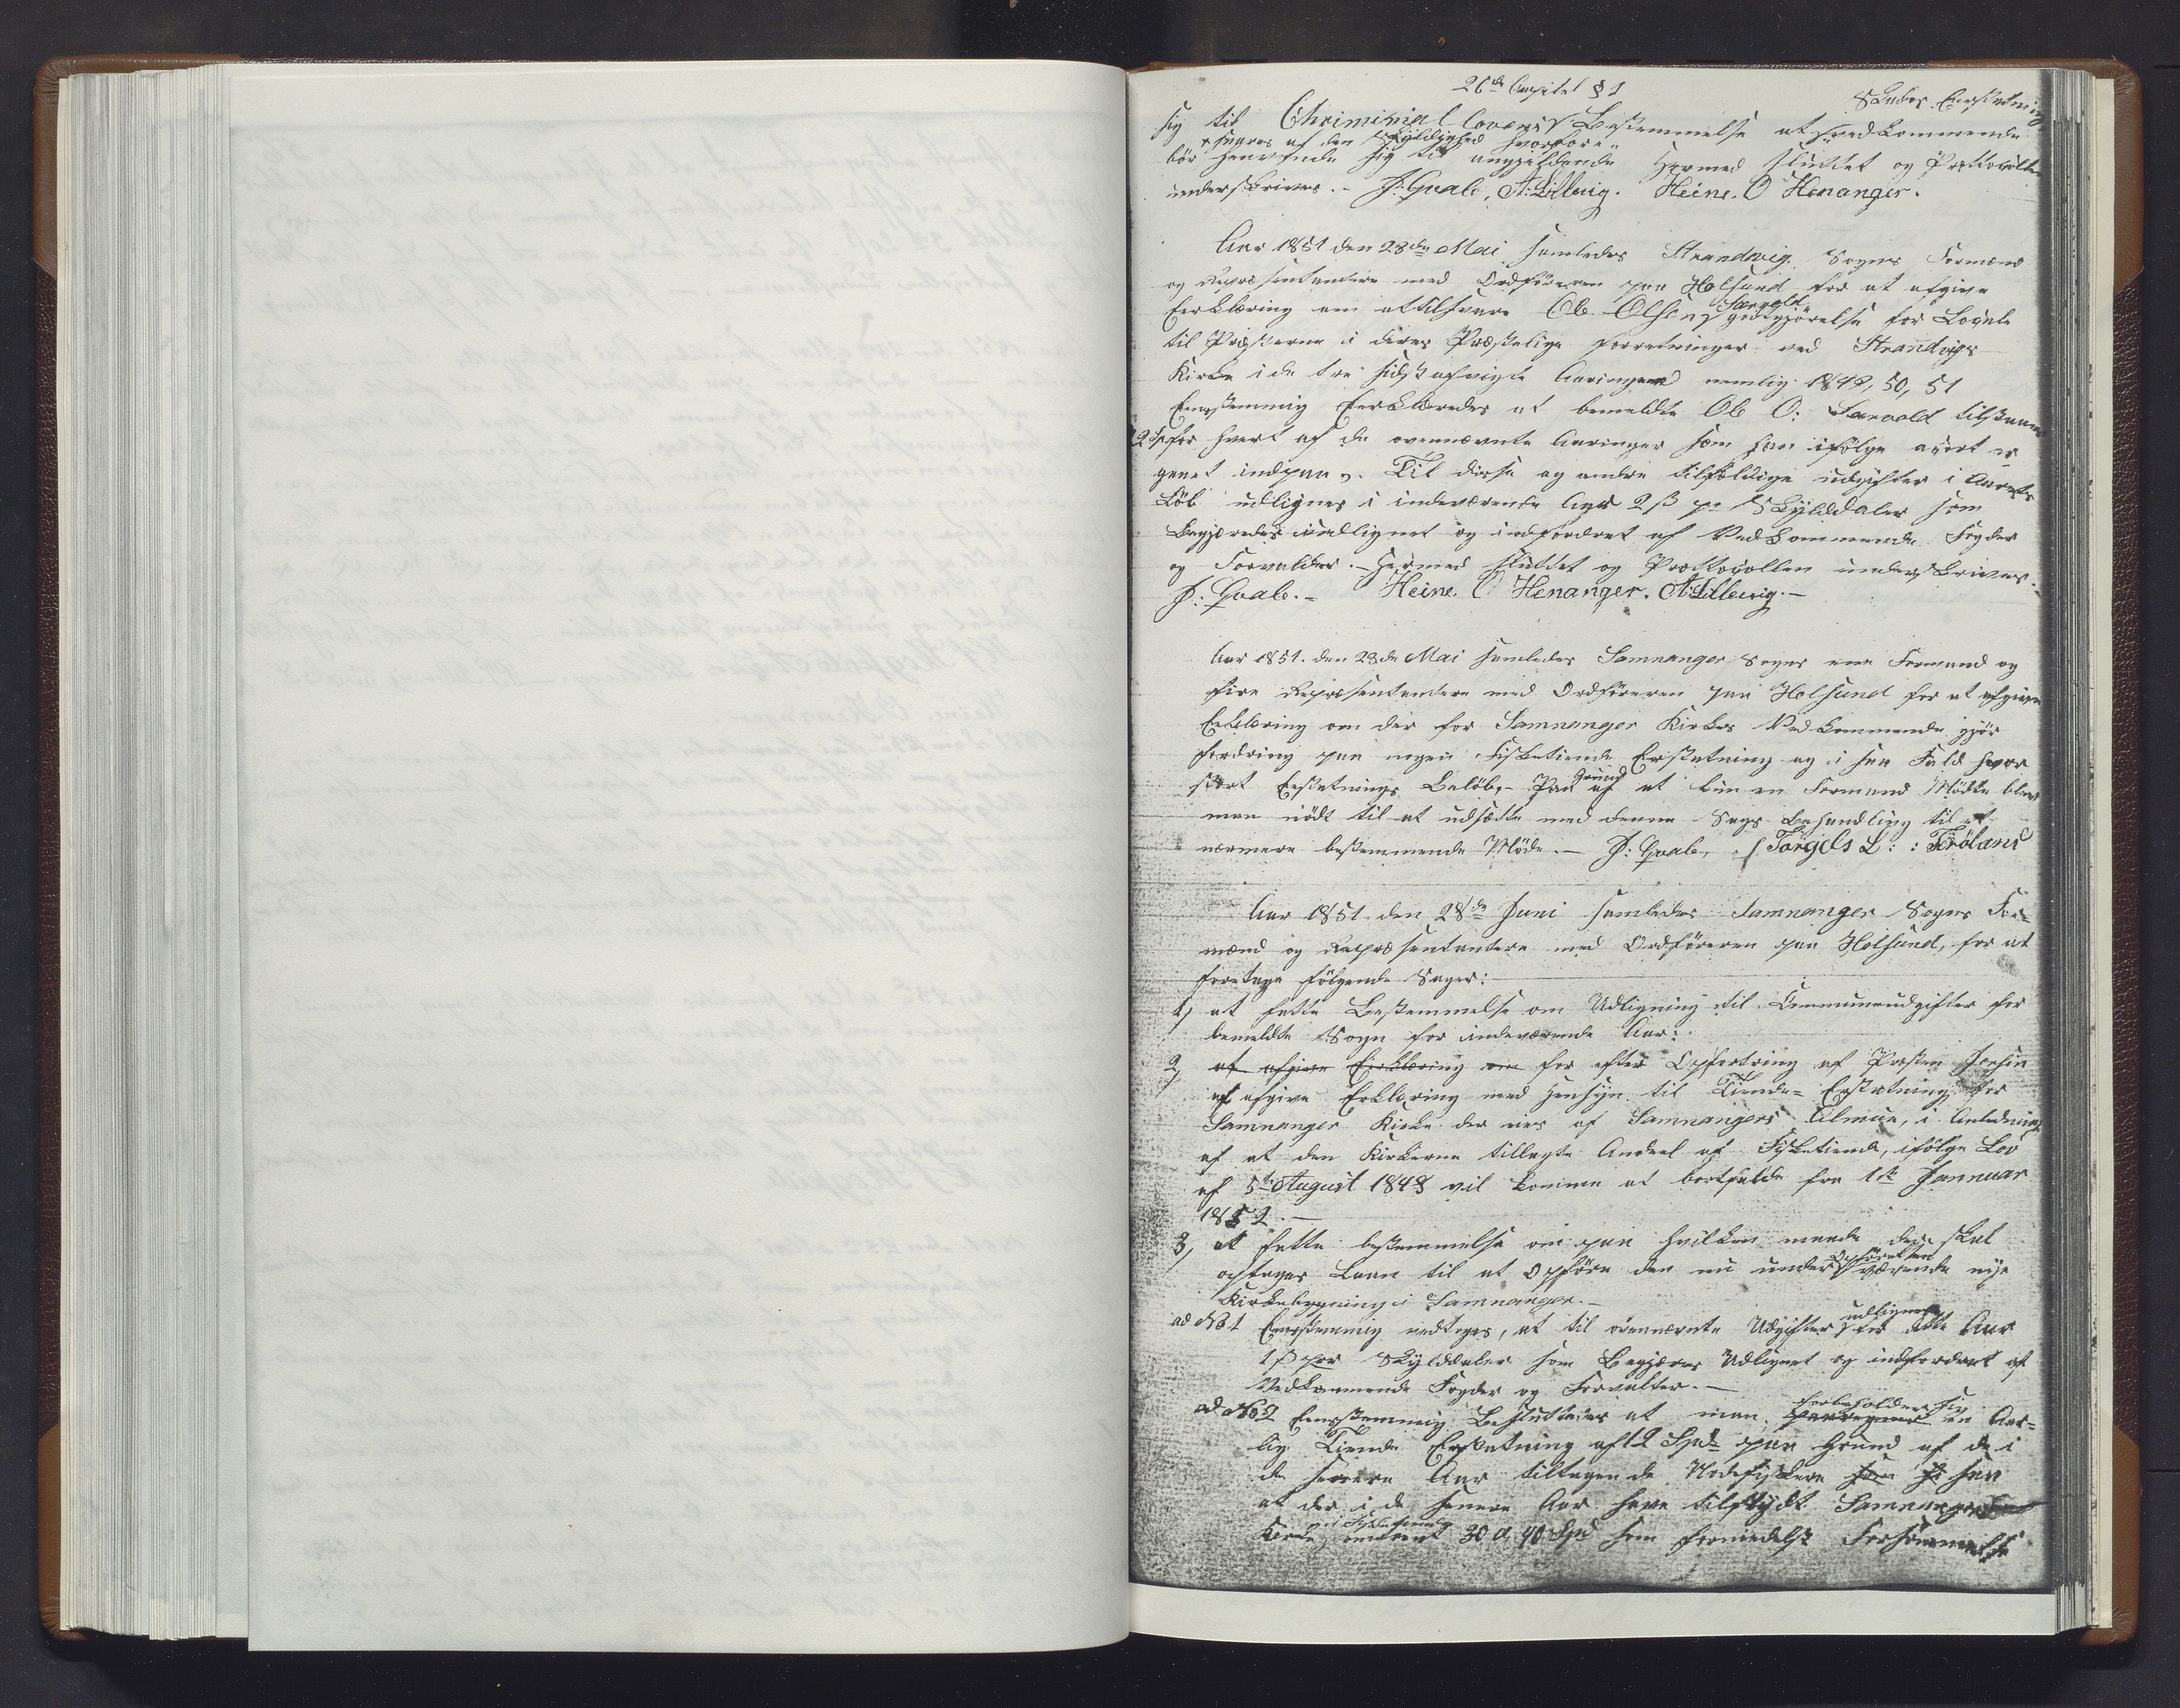 26de Capitel § 1
Skades Erstatning
sig til Chriminallovens Bestemmelse at vedkommende
svares af den skyldighed hvorfore
bör henvende sig til angjeldende Hermed sluttet og Prottocollen
underskrives. - J: Qvale, A: Lillevig. Heine. O Henanger.
Aar 1851 den 28de Mai samledes Strandvig Sogns Formænd
og Repræsentantere med Ordföreren paa Holsund for at afgive
Eerklæring om at tilsvare Ole Olsen Særvold godtgjörelse for Locale
til Præsterne i deres Præstelige forretninger ved Strandvigs
Kirke i de tre sidst afvigte Aaringer nemlig 1849, 50, 51
Eenstemmig Eerklæredes at bemeldte Ole O: Særvold tilstaaes
2 Sp for hvert af de ovennævnte Aaringer som han ifölge acort er
gaaet indpaa. Til disse og andre tilfældige udgifter i Aarets
Löb udlignes i indeværende Aar 2 ß pr Skylddaler som
Begjæredes udlignet og indfordret af Vedkommende Fogder
og Forvalter. - Hermed sluttet og Prottocollen underskrives. -
J: Qvale. - Heine. O Henanger. A: Lillevig. -
Aar 1851. den 28de Mai samledes Samnanger Sogns ene Formand og
fire Repræsentantere med Ordföreren paa Holsund for at afgive
Erklæring om der for Samnanger Kirkes Vedkommende gjör
fordring paa nogen Fisketiende Erstatning og i saa Fald hvor
stort Erstatnings Belöb. - Paa Grund af at kun en Formand Mödte blev
man nödt til at udsætte med denne Sags Behandling til et
nærmere bestemmende Möde. - J: Qvale, Törgels L: : Fröland
Aar 1851 den 28de Juni samledes Samnanger Sogns For=
mænd og Repræsentantere med Ordföreren paa Holsund, for at
foretage fölgende Sager:
1, at fatte Bestemmelse om Udligning til Communeudgifter for
bemeldte Sogn for indeværende Aar:
2, at afgive Eerklæring om for efter Opfordring af Præsten
at afgive Erklæring med Hensyn til Tiende= Erstatning for
Samnanger Kirke der eies af Samnangers Almue, i Anledning
af at den Kirkerne tillagte Andeel af Fisketiende, ifölge Lov
af 5te August 1848 vil komme at bortfalde fra 1ste Januar
1852. -
3, At fatte bestemmelse om paa hvilken maade der skal
optages Laan til at Opföre den nu under Opförelsen værende nye
Kirkebygning i Samnanger. -
ad No 1 Eenstemmig vedtoges, at til ovennævnte Udgifter udlignes for dette Aar
1 ß per Skylddaler som Begjæres Udlignet og indfordret af
Vedkommende Fogder og Forvalter. -
ad No 2 Eenstemmig Besluttedes at man forbeholder sig en Aar=
lig Tiende Erstatning af 12 Spd paa Grund af de i
de senere Aar tiltagende Nodefiskere saa
at der i de senere Aar have tilflydt Samnanger
Kirke i Fisketiende omtrent 30 a 40 Spd som formedelst Forsömmelse